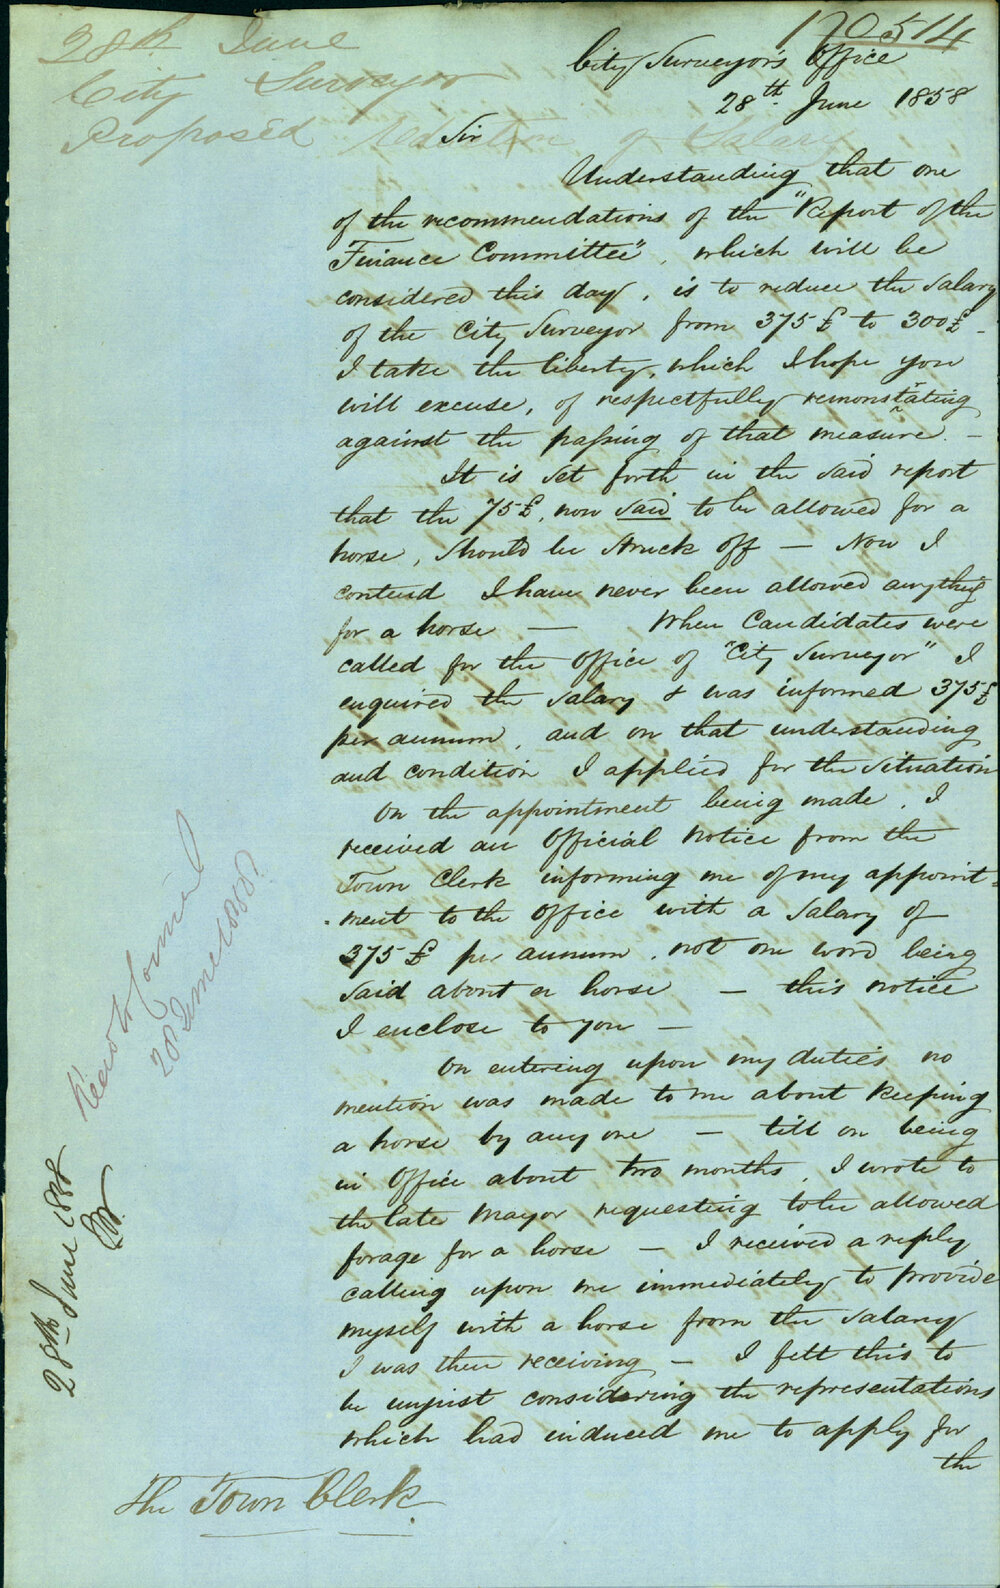 170514
28th June
City Surveyor
Proposed Reduction of Salary
City Surveyor's Office
28th. June 1858
Sir
Understanding that one
of the recommendations of the "Report of the
Finance Committee", which will be
considered this day, is to reduce the salary
of the City Surveyor from 375£ to 300£ -
I take the liberty, which I hope you
will excuse, of respectfully remonstrating
against the passing of that measure. -
It is set forth in the said report
that the 75£, now said to be allowed for a
horse, should be struck off - Now I
contend I have never been allowed anything
for a horse — When Candidates were
called for the Office of "City Surveyor" I
enquired the salary & was informed 375£
per annum, and on that understanding
and condition I applied for the situation
On the appointment being made, I
received an Official Notice from the
Town Clerk informing me of my appoint-
ment to the Office with a Salary of
375£ per annum, not one word being
said about a horse - this notice
I enclose to you -
On entering upon my duties no
mention was made to me about keeping
a horse by any one - till on being
in Office about two months, I wrote to
the late Mayor requesting to be allowed
forage for a horse - I received a reply
calling upon me immediately to provide
myself with a horse from the salary
I was then receiving - I felt this to
be unjust considering the representations
which had induced me to apply for
the
The Town Clerk.
Council
28 June
28th June 1858